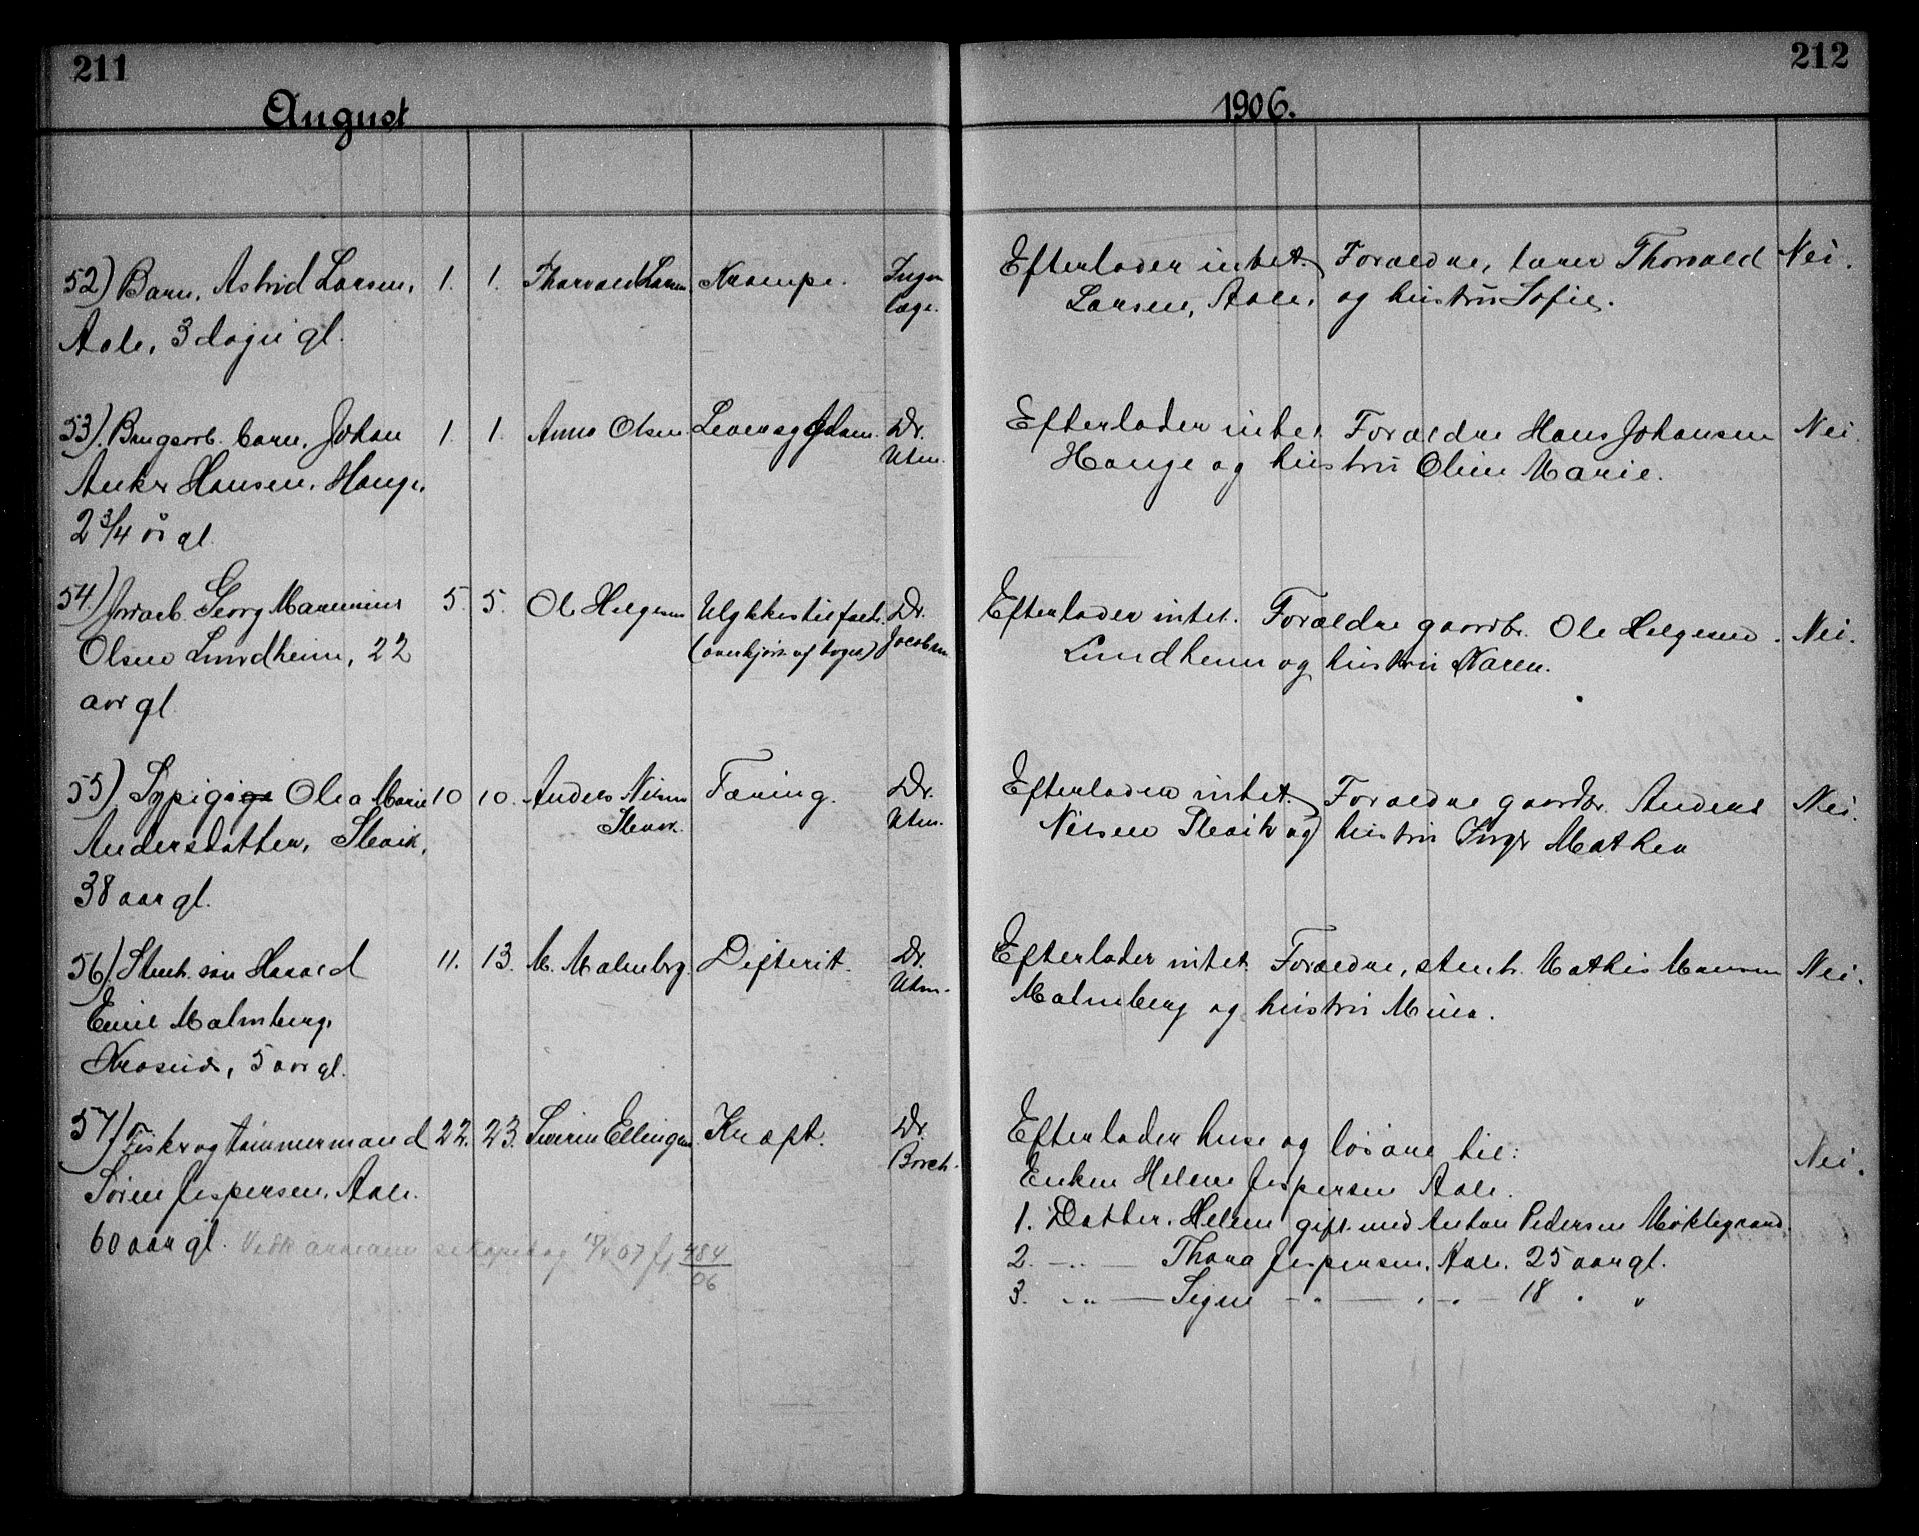 211
August
52) Barn, Astrid Larsen, 1. 1. Thorvald Larsen Krampe. Ingen
læge.
Aale, 3 dage gl.
53). Brugsarb. barn, Johan 1. 1. Anna Olsen Dr.
Utne.
Anker Hansen, Hauge,
2 3/4 år gl.
54) Jordarb. Georg Marenius 5. 5. Ole Helgesen Ulykkestilfælde. Dr.
(overkjørt af toget) Jacobsen
Olsen Lundheim, 22
aar gl.
55) Sypige Olea Marie 10 10. Anders Nilsen Tæring. Dr.
Utne.
Andersdatter, Slevik,
38 aar gl.
56) Stenh. søn Harald 11. 13. M. Malmberg. Difterit. Dr.
Utne.
Emil Malmberg,
Krosnes, 5 aar gl.
57) Fisker og tømmermand 22. 23. Severin Ellingsen Kræft. Dr.
Borch.
Søren Jespersen, Aale.
60 aar gl. 07 484
06
212
1906.
Efterlader intet. Forældre, lærer Thorvald Nei.
Larsen, Aale, og hustru Sofie.
Efterlader intet. Forældre Hans Johansen Nei.
Hauge og hustru Oline Marie.
Efterlader intet. Forældre gaardbr. Ole Helgesen Nei.
Lundheim og hustru Karen.
Efterlader intet. Forældre gaardbr. Anders Nei.
Nilsen Slevik og hustru Inger Mathea
Efterlader intet. Forældre, stenh. Mathis Nei.
Malmberg og hustru Mina.
Efterlader huse og løsøre til: Nei.
Enken Helene Jespersen Aale.
1. Datter. Helene gift med Anton Pedersen Møklegaard.
2. -„- Thora Jespersen, Aale, 25 aar gl.
3. -„- Signe -„- -„- 18 „ „